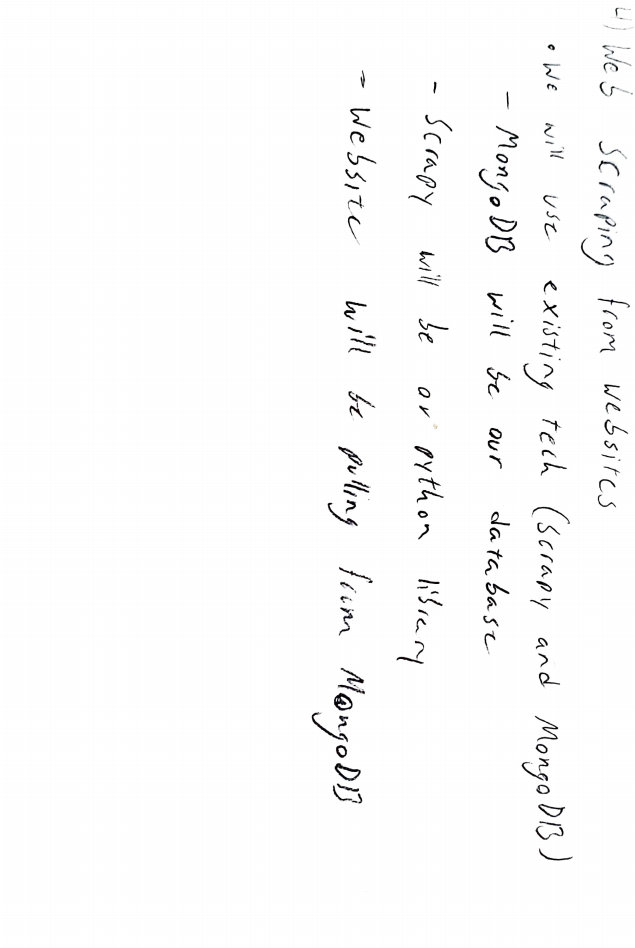 4) Web Scraping from websites
• We will use existing tech (Scrapy and MongoDB)
- MongoDB will be our database
- Scrapy will be or python library
- Website will be pulling from MongoDB